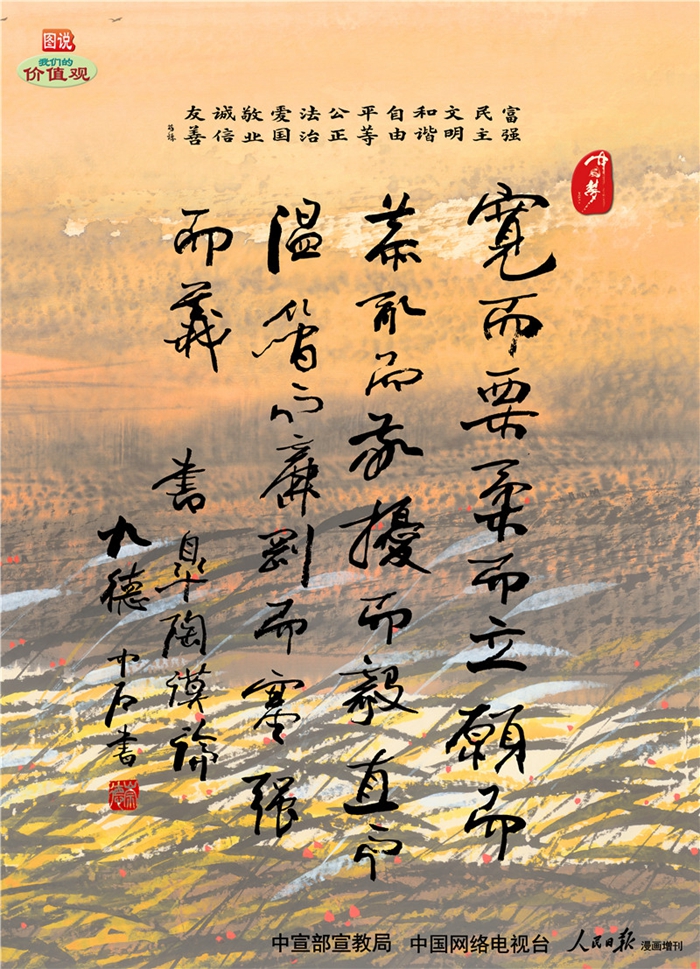 图说
我们的
价值观
富强
民主
文明
和谐
自由
平等
公正
法治
爱国
敬业
诚信
友善
中国梦
寬而栗柔而立願而
恭亂而敬擾而毅直而
温簡而廉剛而塞强
而義
書皋陶謨論
九德 中石書
中宣部宣教局 中国网络电视台 人民日报 漫画增刊